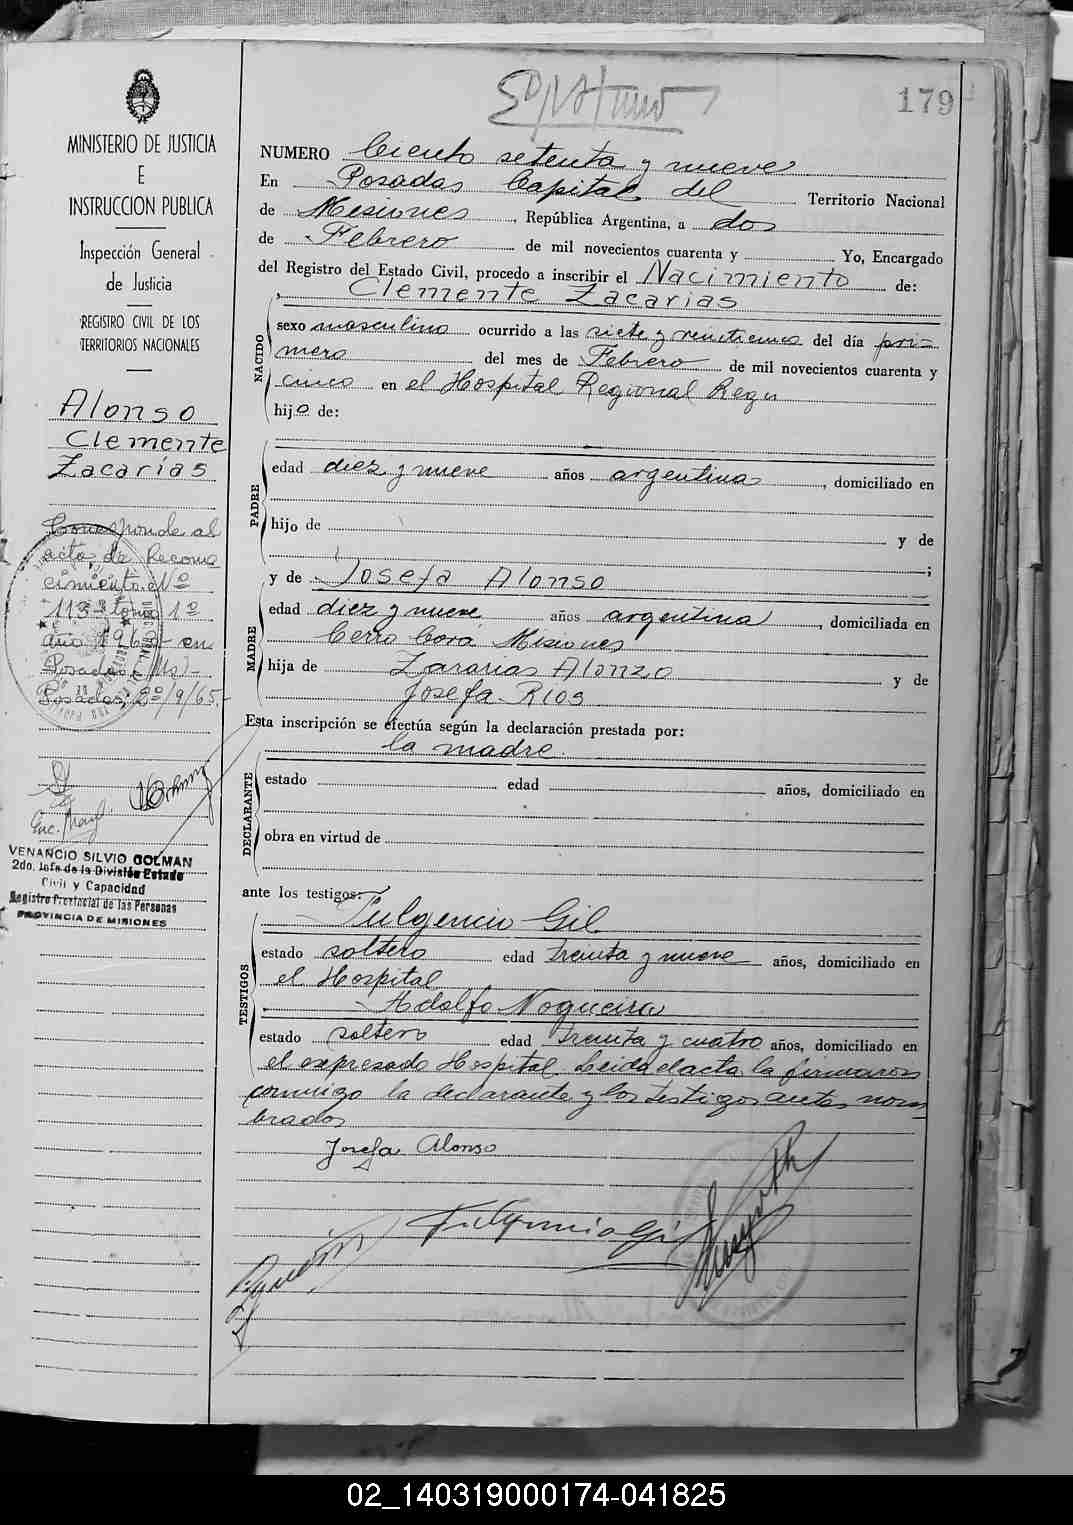 179
MINISTERIO DE JUSTICIA
E
INSTRUCCION PUBLICA
Inspección General
de Justicia
REGISTRO CIVIL DE LOS
TERRITORIOS NACIONALES
Alonso
Clemente
Zacarías
Corresponde al
acta de Recono
cimiento Nº
113 tomo 1º
año 196 en
Posadas (Ms)
Posadas, 2º/9/65.-
VENANCIO SILVIO GOLMAN
2do. Jefe de la División Estado
Civil y Capacidad
Registro Provincial de las Personas
PROVINCIA DE MISIONES
NUMERO Ciento setenta y nueve
En Posadas Capital del Territorio Nacional
de Misiones, República Argentina, a dos
de Febrero de mil novecientos cuarenta y Yo, Encargado
del Registro del Estado Civil, procedo a inscribir el Nacimiento de:
Clemente Zacarias
NACIDO
sexo masculino ocurrido a las siete y veinticinco del día pri-
mero del mes de Febrero de mil novecientos cuarenta y
cinco en el Hospital Regional
hijo de:
PADRE
edad diez y nueve años argentina, domiciliado en
hijo de y de
;
y de Josefa Alonso
MADRE
edad diez y nueve años argentina, domiciliada en
Cerro Corá Misiones
hija de Zacarias Alonzo y de
Josefa Rios
Esta inscripción se efectúa según la declaración prestada por:
la madre.
DECLARANTE
estado edad años, domiciliado en
obra en virtud de
ante los testigos:
TESTIGOS
Fulgencio Gil
estado soltero edad treinta y nueve años, domiciliado en
el Hospital
Adolfo Nogueira
estado soltero edad treinta y cuatro años, domiciliado en
el expresado Hospital. Leida el acta la firmaron
conmigo la declarante y los testigos antes nom
brados
Josefa Alonso
Fulgencio Gil
02_140319000174-041825